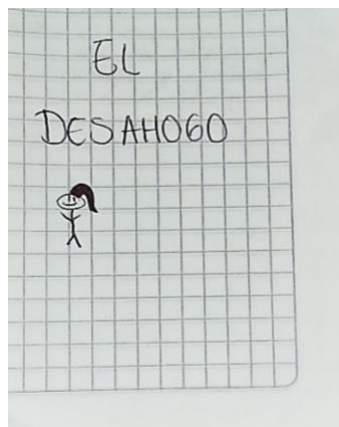 EL
DESAHOGO